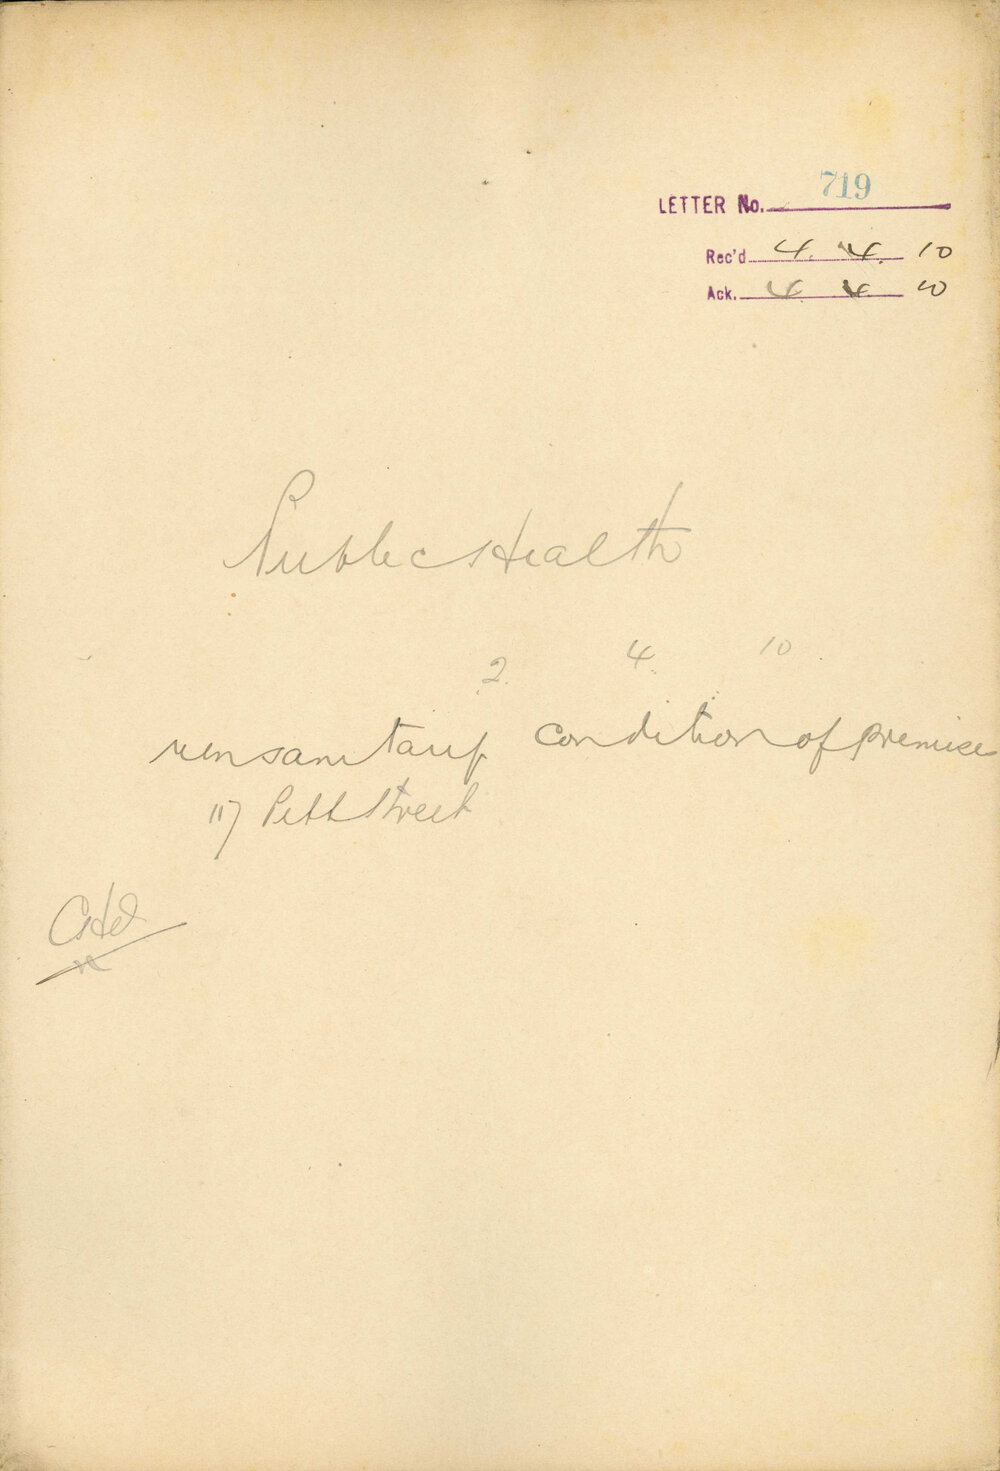 LETTER No. 719
Rec'd 4. 4. 10
Ack. 4. 4. 10
Public Health
2. 4. 10
unsanitary condition of premises
117 Pitt Street